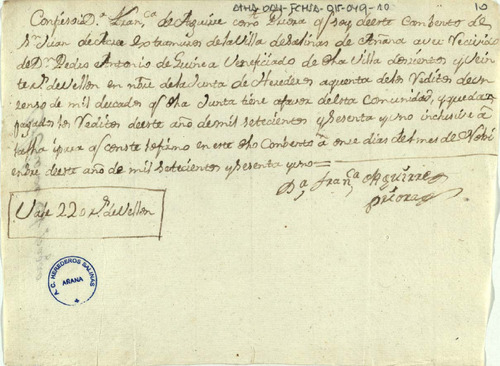 ATHA-DAH-FCHSA-015-049-10
10
Confieso Dª. Franca. de Aguirre como Priora q soy de este Combento de
Sn. Juan de Acre extramuros de la Villa de Salinas de Añana aver Recivido
de Dn. Pedro Antonio de Guinea Veneficiado de dha Villa doscientos y Veinte
Rs. de Vellon en nre de la Junta de Herederos a quenta de los Reditos de un
censo de mil ducados q dha Junta tiene a favor de esta Comunidad, y quedan
pagados los Reditos de este año de mil setecientos y sesenta y uno inclusive â
la fha y para q conste lo firmo en este dho Combento â once dias del mes de Nobi
embre de este año de mil setecientos y sesenta y uno
Dª. Franca. Aguirre
Priora
Vale 220 Rs. de Vellon
A.C. HEREDEROS SALINAS
AÑANA